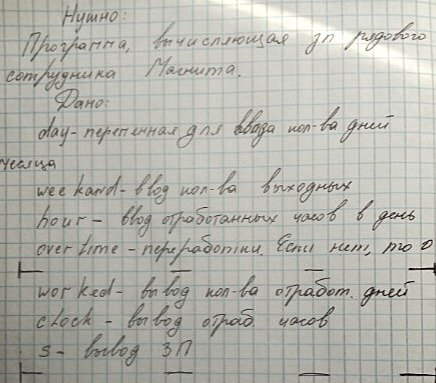 Нужно:
Программа, вычисляющая зп рядового
сотрудника Магнита.
Дано:
day - переменная для ввода кол-ва дней
месяца
weekand - ввод кол-ва выходных
hour - ввод отработанных часов в день
overtime - переработки. Если нет, то 0
worked - вывод кол-ва отработ. дней
clock - вывод отраб. часов
s - вывод ЗП